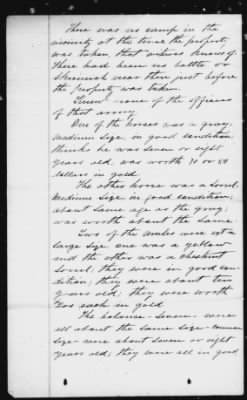 There was no camp in the
vicinity at the time the property
was taken, that witness knows of.
There had been no battle or
skirmish near there just before
the property was taken.
Knew none of the officers
of that army.
One of the horses was a gray,
medium size, in good condition
thinks he was seven or eight
years old, was worth 70 or 80
dollars in gold.
The other horse was a sorrel,
medium size, in good condition;
about same age as the gray;
was worth about the same
Two of the mules were extra
large size, one was a yellow
and the other was a chestnut
sorrel; they were in good con-
dition; they were about ten
years old; they were worth
each in gold
The balance - seven - were
all about the same size - common
size - were about seven or eight
years old; they were all in good